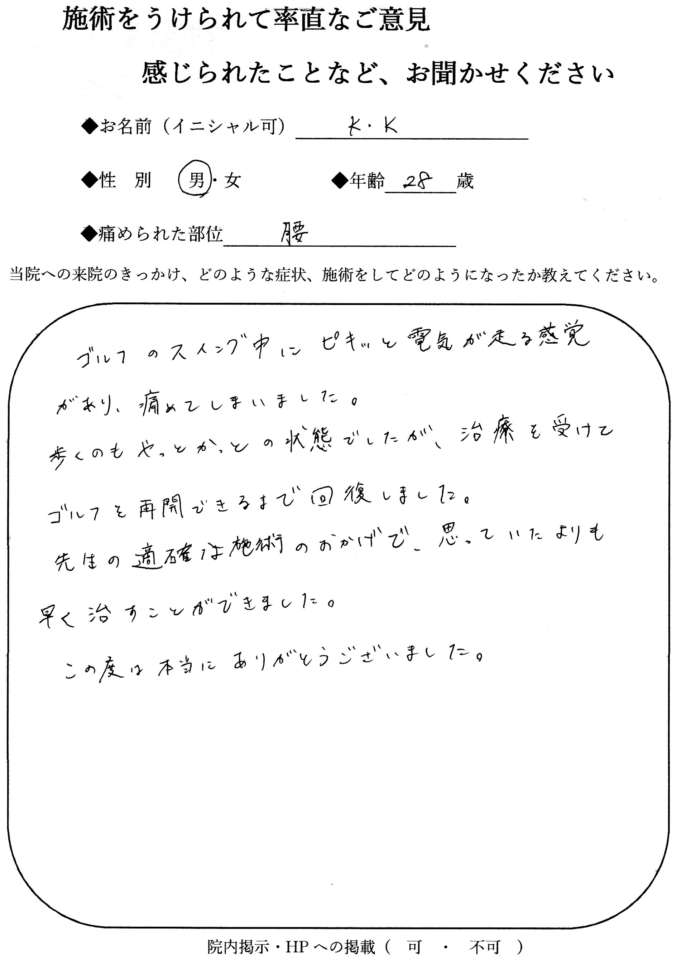 施術をうけられて率直なご意見
感じられたことなど、お聞かせください
◆お名前（イニシャル可） K・K
◆性 別 男・女 ◆年齢 28 歳
◆痛められた部位 腰
当院への来院のきっかけ、どのような症状、施術をしてどのようになったか教えてください。
ゴルフのスイング中にピキッと電気が走る感覚
があり、痛めてしまいました。
歩くのもやっとかっとの状態でしたが、治療を受けて
ゴルフを再開できるまで回復しました。
先生の適確な施術のおかげで、思っていたよりも
早く治すことができました。
この度は本当にありがとうございました。
院内掲示・HPへの掲載（ 可 ・ 不可 ）